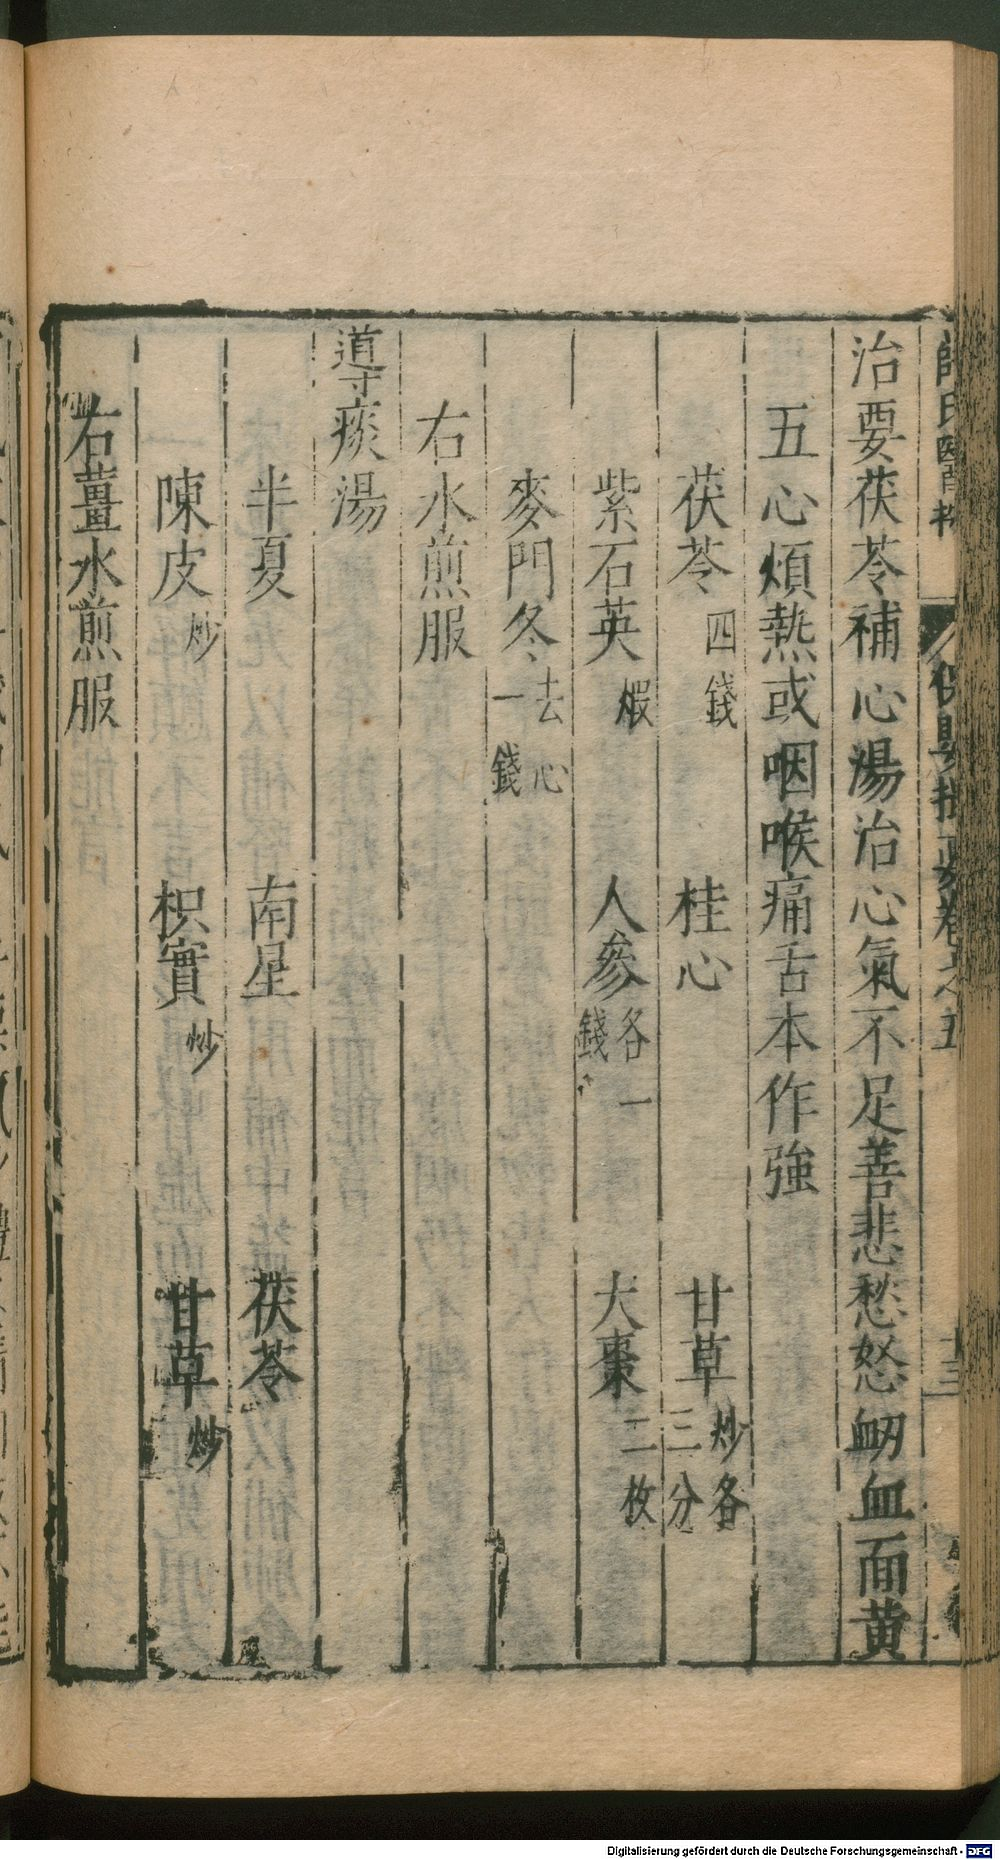 治要茯苓補心湯治心氣不足善悲愁怒衂血面黄
五心煩熱或咽喉痛舌本作強
茯苓四錢 桂心 甘草炒各三分
紫石英煆 人參各一錢 大棗二枚
麥門冬去心一錢
右水煎服
導痰湯
半夏 南星 茯苓
陳皮炒 枳實炒 甘草炒
右薑水煎服
保嬰撮要卷之五
十三
Digitalisierung gefördert durch die Deutsche Forschungsgemeinschaft - DFG